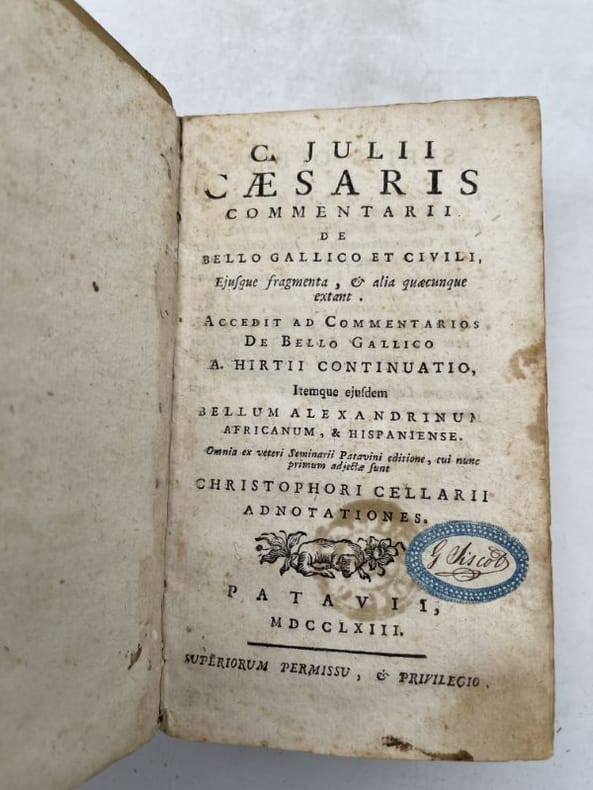 C. JULII
CÆSARIS
COMMENTARII
DE
BELLO GALLICO ET CIVILI,
Ejuſque fragmenta, & alia quæcunque
extant.
ACCEDIT AD COMMENTARIOS
DE BELLO GALLICO
A. HIRTII CONTINUATIO,
Itemque ejuſdem
BELLUM ALEXANDRINUM
AFRICANUM, & HISPANIENSE.
Omnia ex veteri Seminarii Patavini editione, cui nunc
primum adjectæ ſunt
CHRISTOPHORI CELLARII
ADNOTATIONES.
PATAVII,
MDCCLXIII.
SUPERIORUM PERMISSU, & PRIVILEGIO.